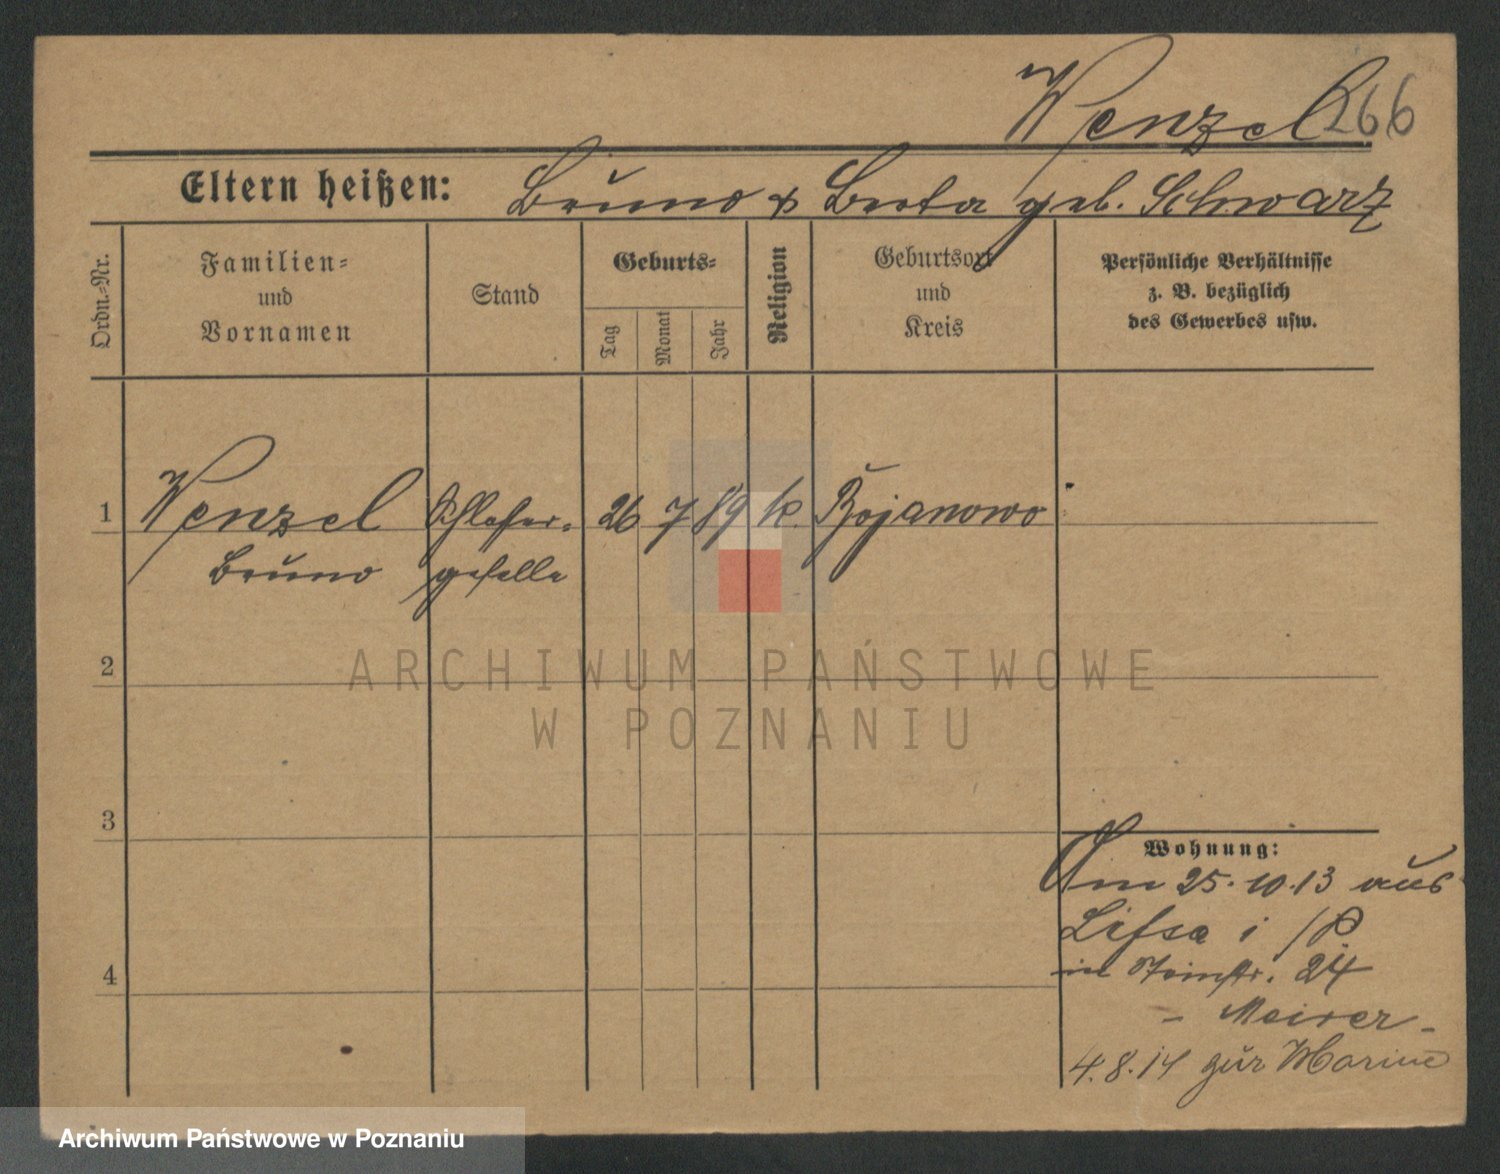 Wenzel 266
Eltern heißen: Bruno & Berta geb. Schwarz
Ordn.-Nr.
Familien-
und
Vornamen
Stand
Geburts-
Tag
Monat
Jahr
Religion
Geburtsort
und
Kreis
Persönliche Verhältnisse
z. B. bezüglich
des Gewerbes usw.
1 Wenzel Schlosser- 26 7 89 k. Bojanowo
Bruno geselle
2
3
4
Wohnung:
Am 25.10.13 aus
Lissa i/P
in Steinstr. 24
- Meirer -
4.8.14 zur Marine
ARCHIWUM PAŃSTWOWE
W POZNANIU
Archiwum Państwowe w Poznaniu